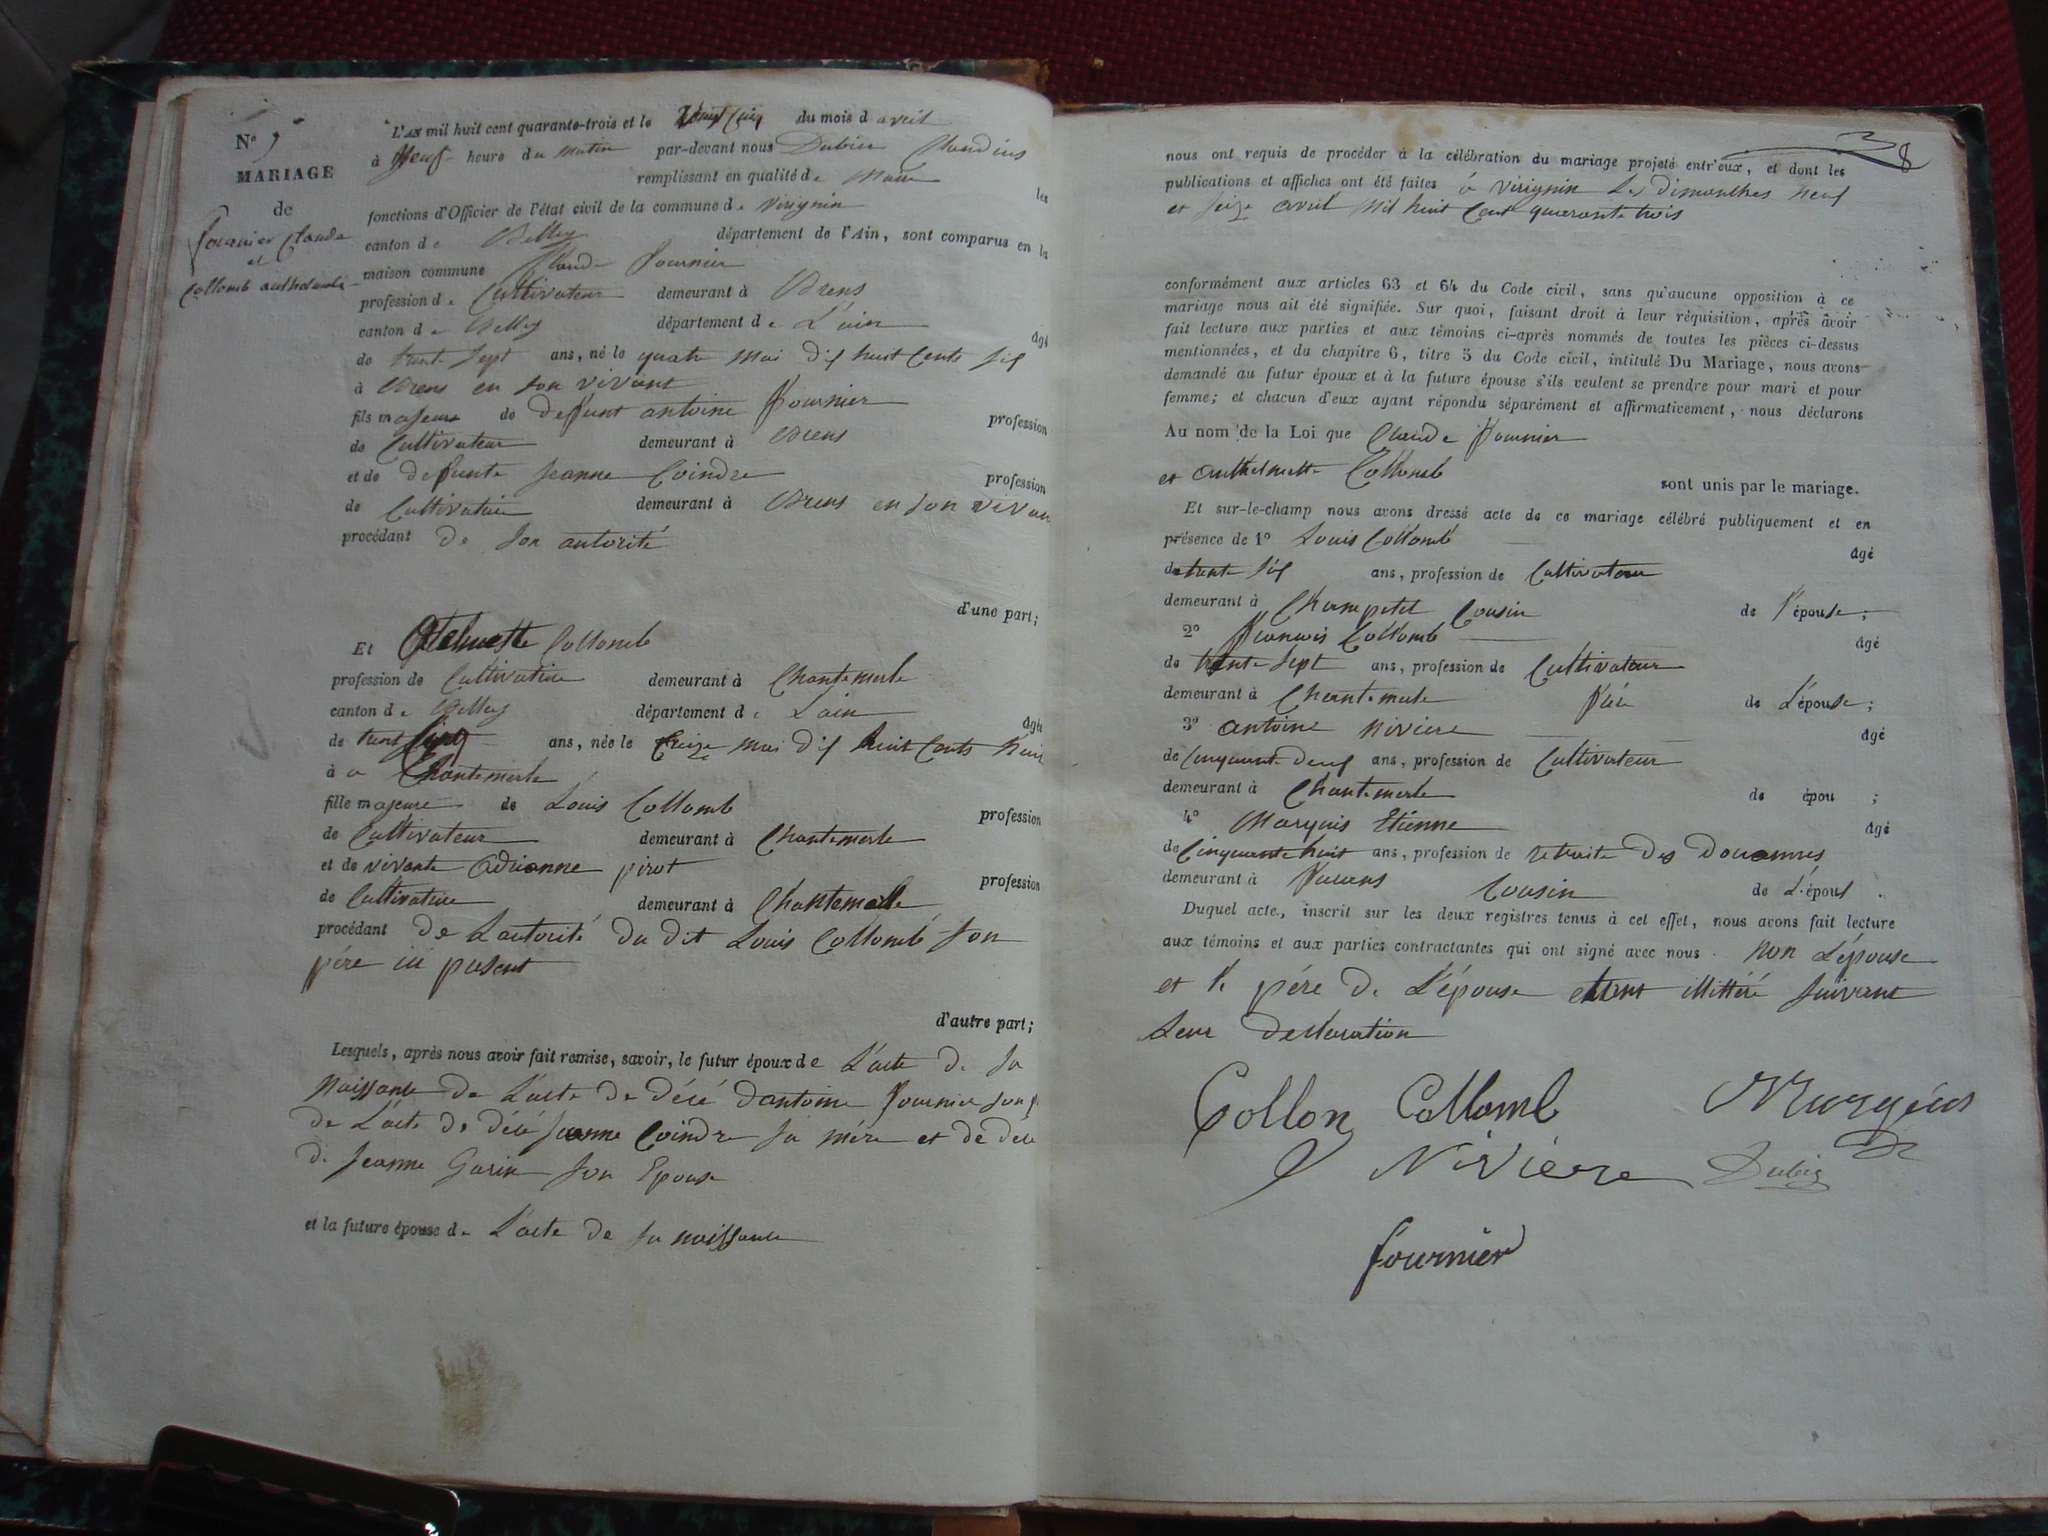 N° 9
MARIAGE
de
fournier Claude
et
Collomb anthelmette
L'AN mil huit cent quarante-trois et le vingt cinq du mois d avril
à Neuf heure du matin par-devant nous Dubien Claudius
remplissant en qualité de Maire les
fonctions d'Officier de l'état civil de la commune de virignin
canton de Belley département de l'Ain, sont comparus en la
maison commune Claude fournier
profession de Cultivateur demeurant à Brens
canton de Belley département de L'ain âgé
de trente sept ans, né le quatre mai dix huit Cents six
à Brens en son vivant
fils majeur de deffunt antoine fournier profession
de Cultivateur demeurant à Brens
et de defunte Jeanne Coindre profession
de Cultivatrice demeurant à Brens en son vivan
procédant de son autorité
d'une part;
Et Collomb
profession de Cultivatrice demeurant à Chantemerle
canton de Belley département de Lain âgée
de trente ans, née le treize mai dix huit Cents huit
à a Chantemerle
fille majeure de Louis Collomb profession
de Cultivateur demeurant à Chantemerle
et de vivante adrianne pirot profession
de Cultivatrice demeurant à Chantemelle
procédant de Lautorité du dit Louis Collomb son
père ici présent
d'autre part;
Lesquels, après nous avoir fait remise, savoir, le futur époux de L'acte de sa
Naissante de L'acte de décé dantoine fournier son p
de L'acte de décé Jeanne Coindre sa mére et de décé
de Jeanne Garin son Epouse
et la future épouse de L'acte de sa naissance
8
nous ont requis de procéder à la célébration du mariage projeté entr'eux, et dont les
publications et affiches ont été faites à virignin Les dimanches neuf
et seize avril mil huit Cent quarante trois
conformément aux articles 63 et 64 du Code civil, sans qu'aucune opposition à ce
mariage nous ait été signifiée. Sur quoi, faisant droit à leur réquisition, après avoir
fait lecture aux parties et aux témoins ci-après nommés de toutes les pièces ci-dessus
mentionnées, et du chapitre 6, titre 5 du Code civil, intitulé Du Mariage, nous avons
demandé au futur époux et à la future épouse s'ils veulent se prendre pour mari et pour
femme; et chacun d'eux ayant répondu séparément et affirmativement, nous déclarons
Au nom de la Loi que Claude fournier
et anthelmette Collomb sont unis par le mariage.
Et sur-le-champ nous avons dressé acte de ce mariage célébré publiquement et en
présence de 1° Louis Collomb âgé
de trente six ans, profession de Cultivateur
demeurant à Champetel Cousin de l'épouse;
2° francois Collomb âgé
de trente sept ans, profession de Cultivateur
demeurant à Chantemerle de L'épouse;
3° antoine Nivière âgé
de Cinquante deux ans, profession de Cultivateur
demeurant à Chantemerle de épou ;
4° Marquis Etienne âgé
de Cinquante huit ans, profession de retraite des douannes
demeurant à Cousin de L'époux.
Duquel acte, inscrit sur les deux registres tenus à cet effet, nous avons fait lecture
aux témoins et aux parties contractantes qui ont signé avec nous. Non L'épouse
et le père de L'épouse etant illittéré suivant
Leur desclaration
Collon Collomb Marquis
Nivière Dubien
fournier